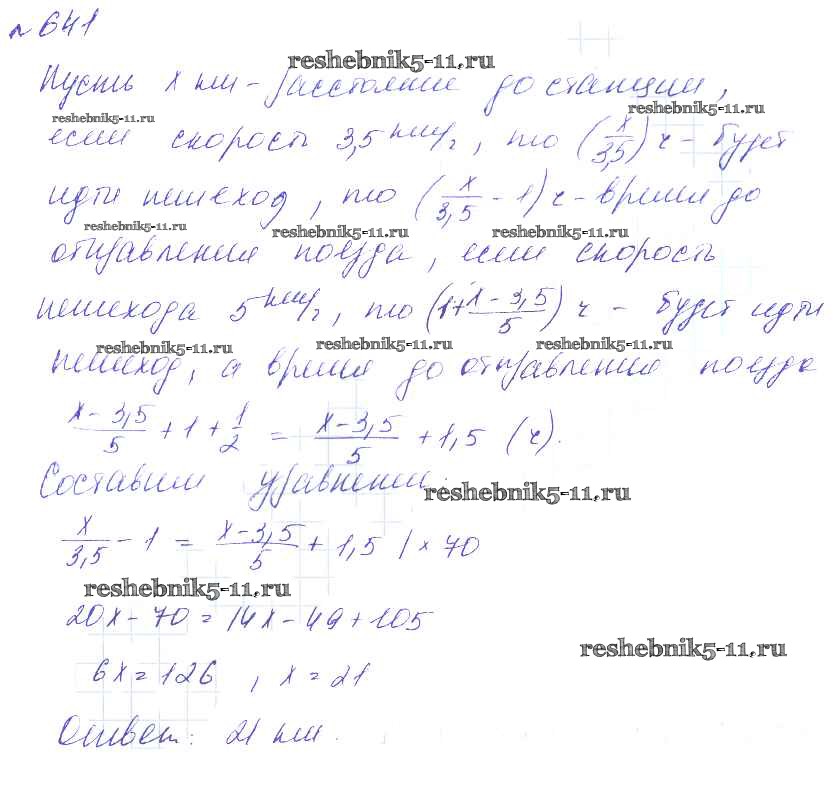 № 641
reshebnik5-11.ru
Пусть x км - расстояние до станции,
reshebnik5-11.ru reshebnik5-11.ru
если скорость 3,5 км/ч, то (x/3,5) ч - будет
идти пешеход, то (x/3,5 - 1) ч - время до
reshebnik5-11.ru reshebnik5-11.ru reshebnik5-11.ru
отправления поезда, если скорость
пешехода 5 км/ч, то (1 + x - 3,5/5) ч - будет идти
reshebnik5-11.ru reshebnik5-11.ru reshebnik5-11.ru
пешеход, а время до отправления поезда
x - 3,5/5 + 1 + 1/2 = x - 3,5/5 + 1,5 (ч).
Составим уравнение:
reshebnik5-11.ru
x/3,5 - 1 = x - 3,5/5 + 1,5 | × 70
reshebnik5-11.ru
20x - 70 = 14x - 49 + 105
reshebnik5-11.ru
6x = 126 , x = 21
Ответ: 21 км.